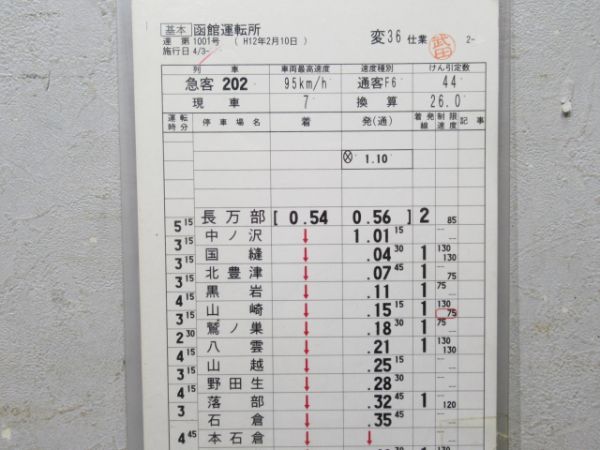 基本 函館運転所
運 第 1001号 ( H12年2月10日 )
施行日 4/3-
変36 仕業 武田 2-
列車 車両最高速度 速度種別 けん引定数
急客 202 95km/h 通客F6 44
現車 7 換算 26.0
運転時分 停車場名 着 発(通) 着発線 制限速度 記事
⊗ 1.10
長万部 [ 0.54 0.56 ] 2 85
5 15
中ノ沢 ↓ 1.01 15
3 15
国縫 ↓ .04 30 1 130 130
3 15
北豊津 ↓ .07 45 1 75
3 15
黒岩 ↓ .11 1 75
4 15
山崎 ↓ .15 15 1 130 75
3 15
鷲ノ巣 ↓ .18 30 1 75
2 30
八雲 ↓ .21 1 130 130
4 15
山越 ↓ .25 15
3 15
野田生 ↓ .28 30
4 15
落部 ↓ .32 45 1 120
3
石倉 ↓ .35 45
4 45
本石倉 ↓ ↓